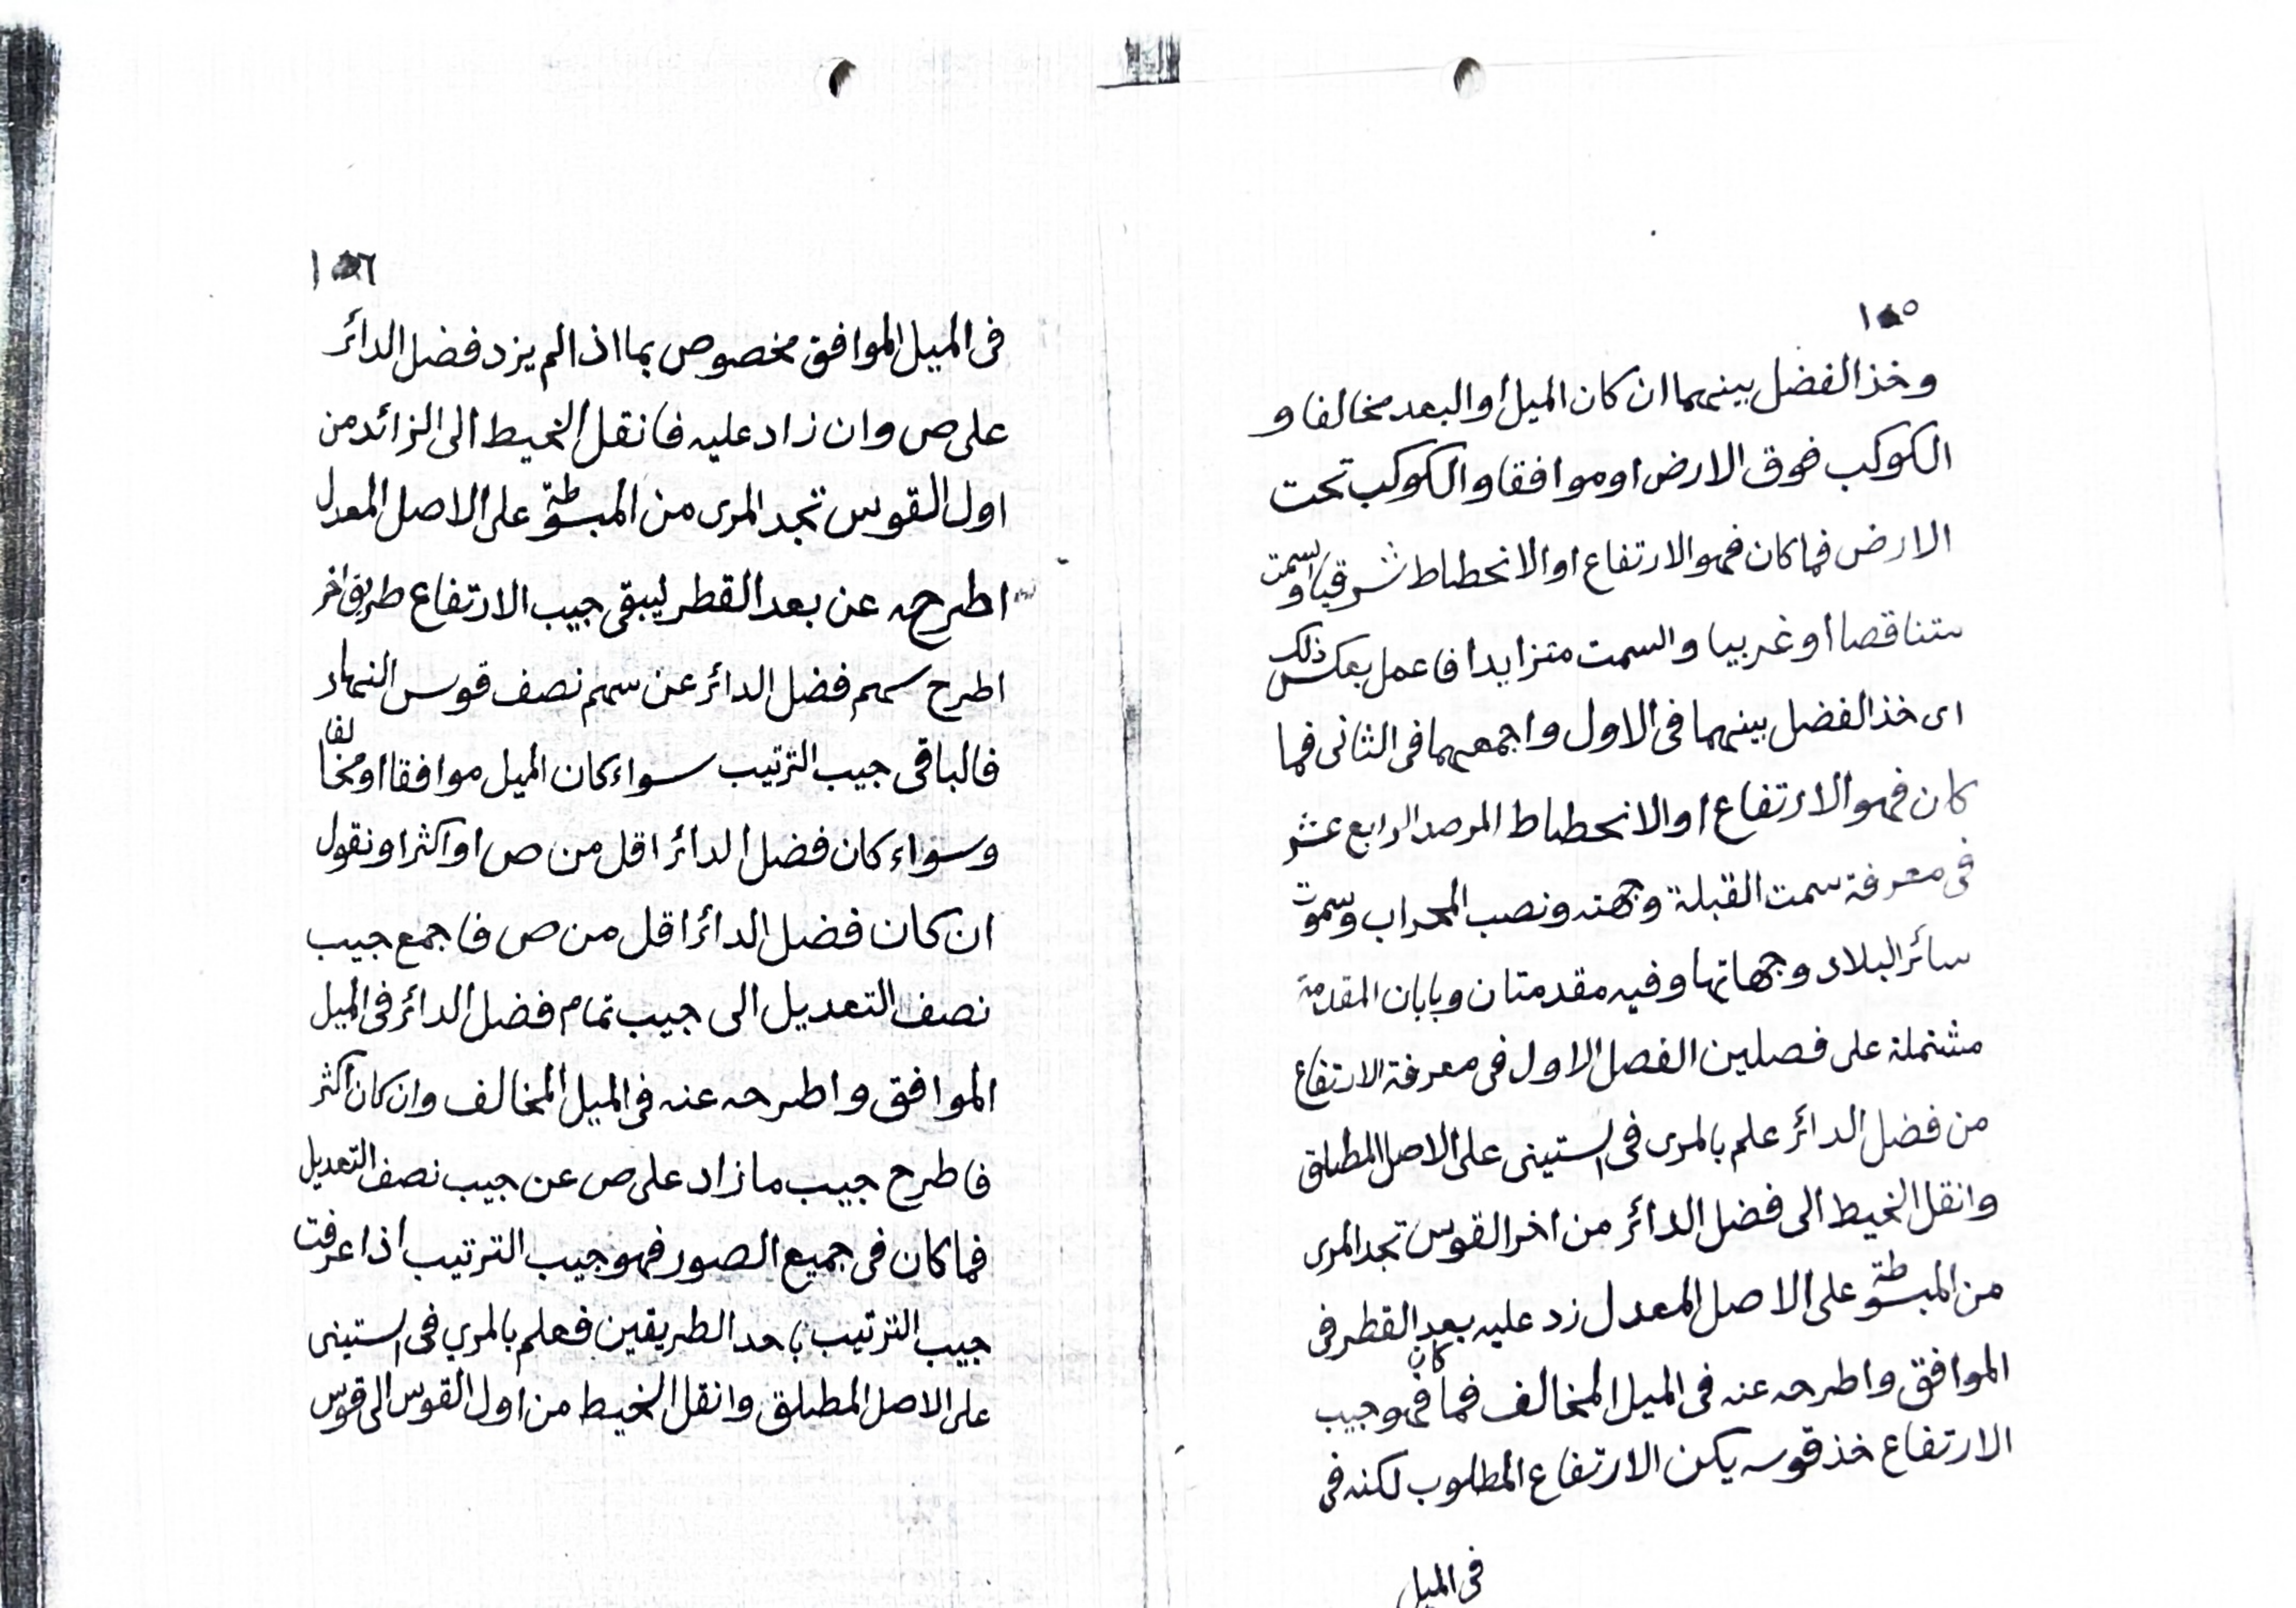 ١٨٥
وخذ الفضل بينهما ان كان الميل أو البعد مخالفا و
الكوكب فوق الارض او موافقا والكوكب تحت
الارض فما كان فهو الارتفاع او الانحطاط شرقيا والسمت
متناقصا او غربيا والسمت متزايدا فاعمل بعكس ذلك
اى خذ الفضل بينهما فى الاول واجمعهما فى الثانى فما
كان فهو الارتفاع او الانحطاط المرصد الرابع عشر
فى معرفة سمت القبلة وجهته ونصب المحراب وسموت
سائر البلاد وجهاتها وفيه مقدمتان وبابان المقدمة
مشتملة على فصلين الفصل الاول فى معرفة الارتفاع
من فضل الدائر علم بالمرى فى الستينى على الاصل المطلق
وانقل الخيط الى فضل الدائر من اخر القوس تجد المرى
من المبسوطة على الاصل المعدل زد عليه بعد القطر فى
الموافق واطرحه عنه فى الميل المخالف فما كان فهو جيب
الارتفاع خذ قوسه يكن الارتفاع المطلوب لكنه فى
فى الميل
١٨٦
فى الميل الموافق مخصوص بما اذا لم يزد فضل الدائر
على ص وان زاد عليه فانقل الخيط الى الزائد من
اول القوس تجد المرى من المبسوطة على الاصل المعدل
اطرحه عن بعد القطر ليبقى جيب الارتفاع طريق اخر
اطرح سهم فضل الدائر عن سهم نصف قوس النهار
فالباقى جيب الترتيب سواء كان الميل موافقا او مخالفا
وسواء كان فضل الدائر اقل من ص او اكثر او نقول
ان كان فضل الدائر اقل من ص فاجمع جيب
نصف التعديل الى جيب تمام فضل الدائر فى الميل
الموافق واطرحه عنه فى الميل المخالف وان كان اكثر
فاطرح جيب ما زاد على ص عن جيب نصف التعديل
فما كان فى جميع الصور فهو جيب الترتيب اذا عرفت
جيب الترتيب باحد الطريقين فعلم بالمري فى الستينى
على الاصل المطلق وانقل الخيط من اول القوس الى قوس